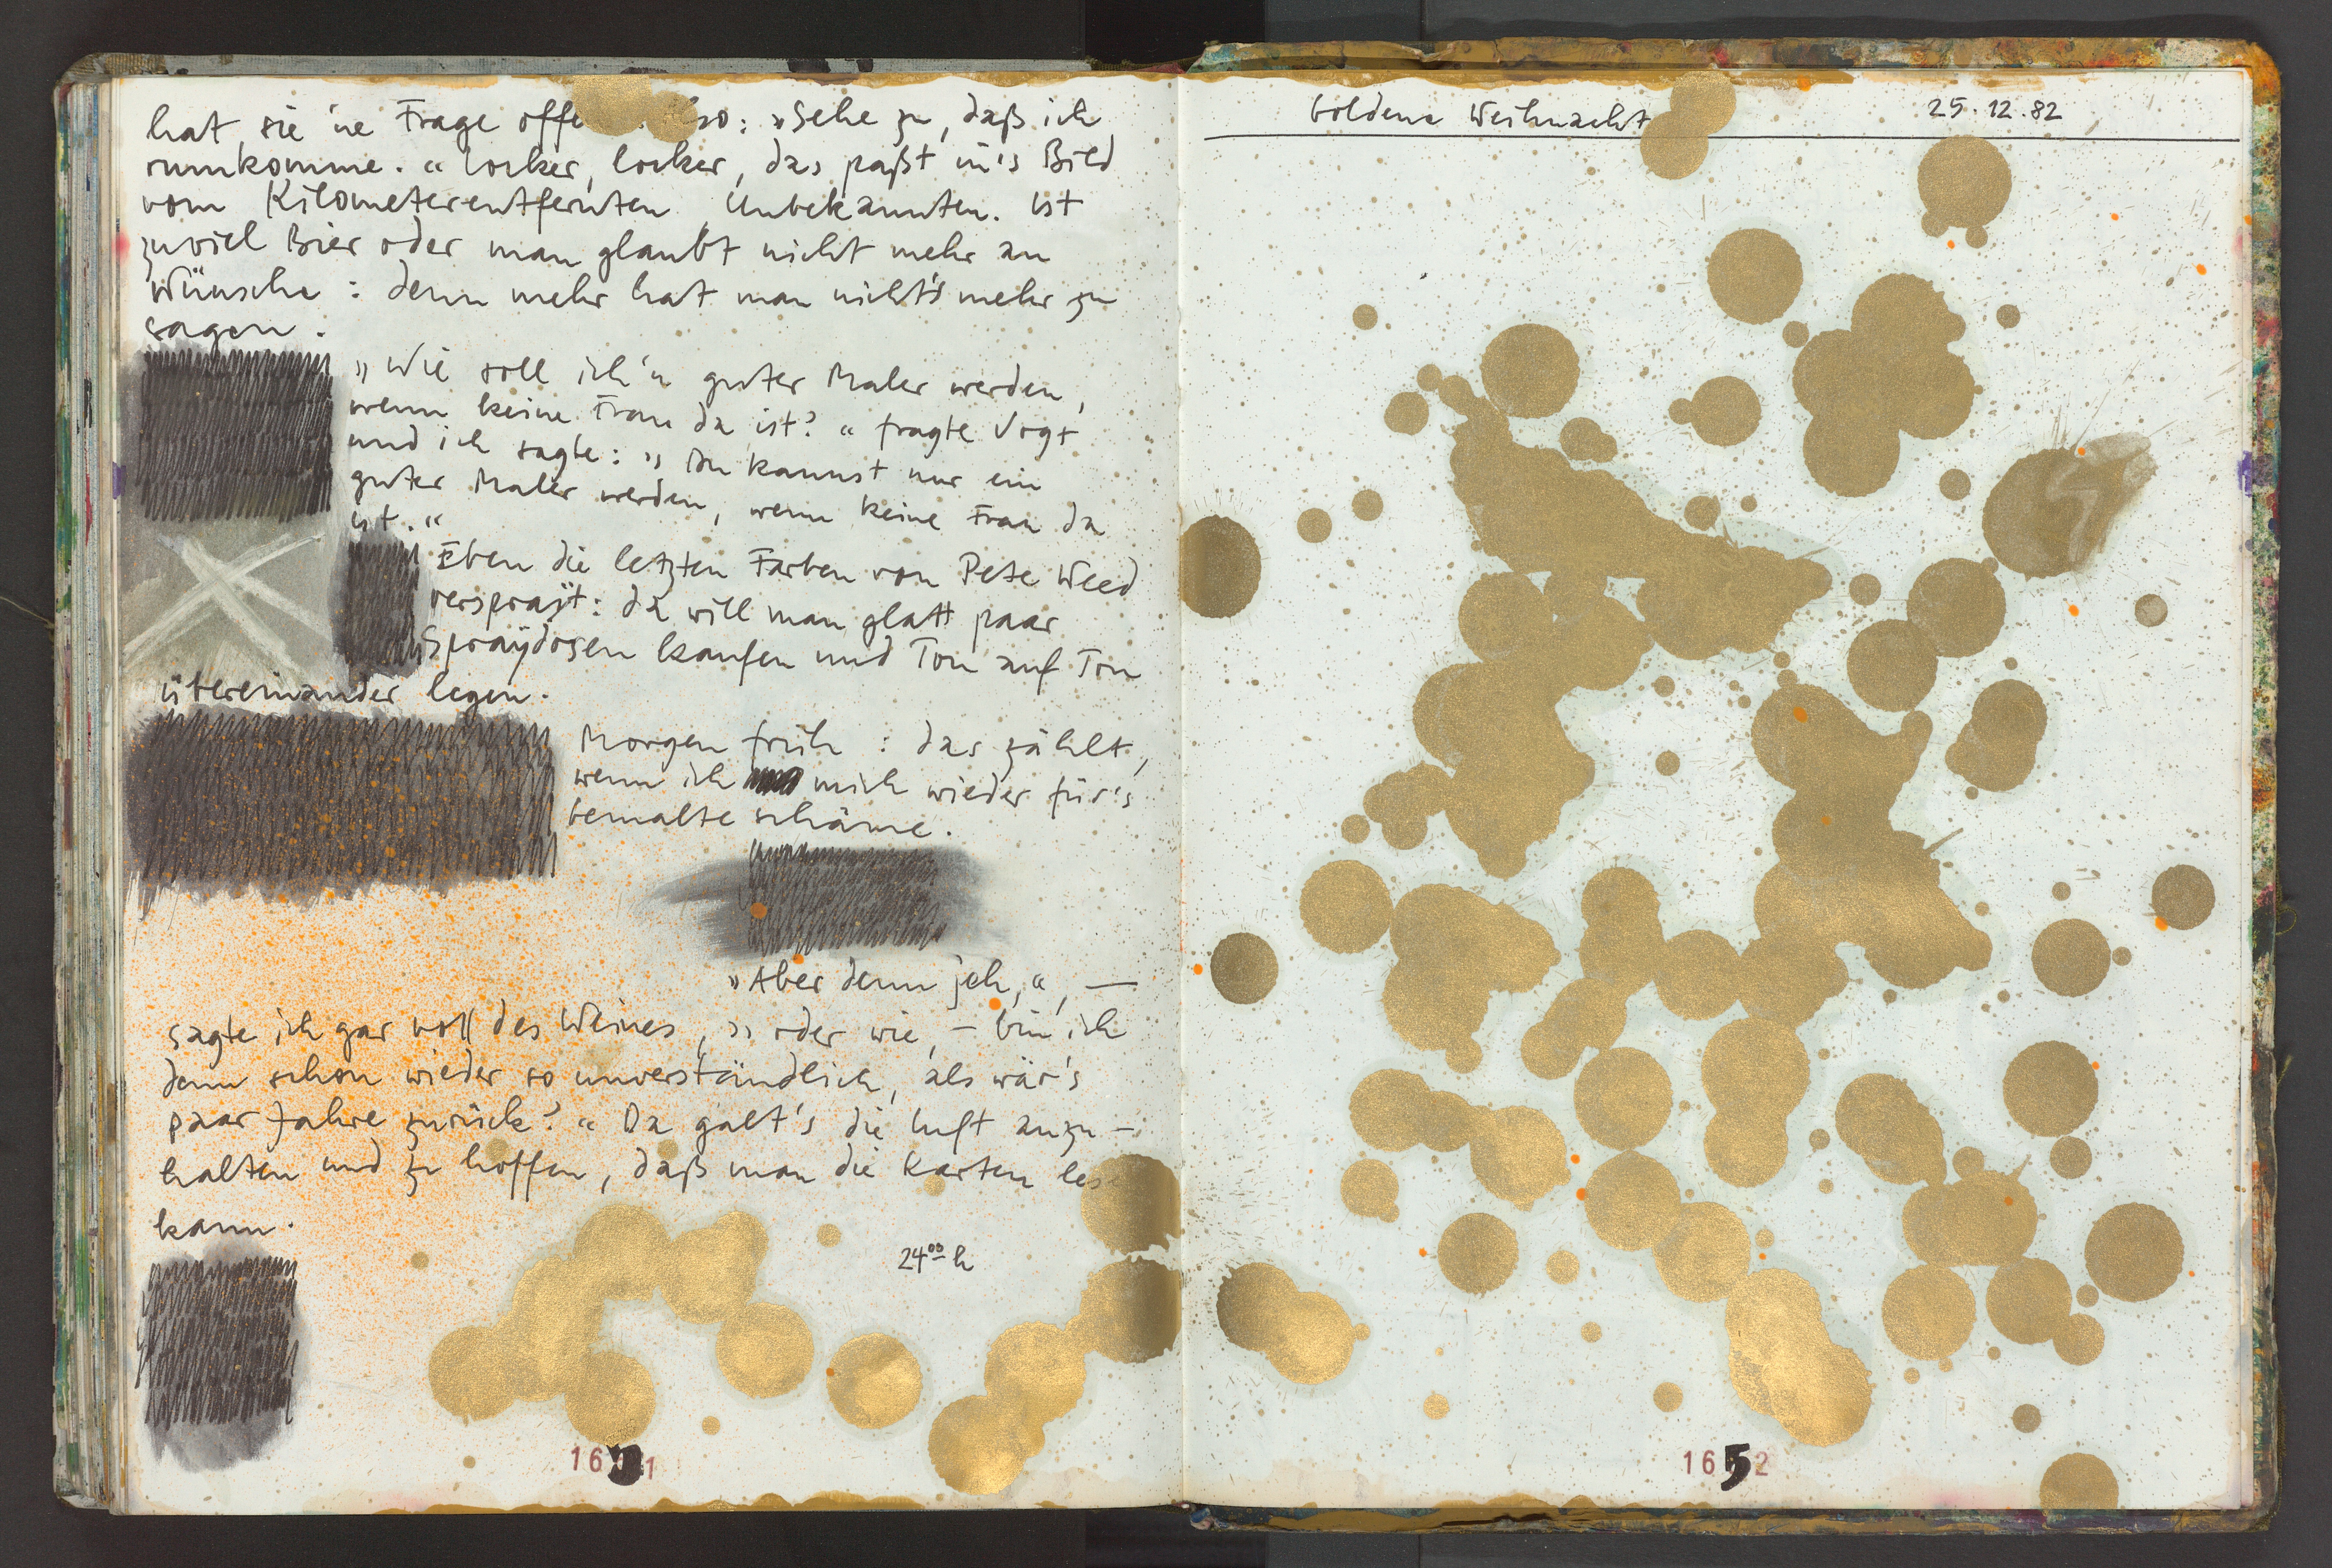 hat sie 'ne Frage offe : »Sehe zu, daß ich
rumkomme.“ locker, locker, das paßt in's Bild
vom Kilometerentfernten Unbekannten. Ist
zuviel Bier oder man glaubt nicht mehr an
Wünsche : denn mehr hat man nicht's mehr zu
sagen.
»Wie soll ich 'n guter Maler werden,
wenn keine Frau da ist?“ fragte Vogt
und ich sagte: »Du kannst nur ein
guter Maler werden, wenn keine Frau da
ist.“
Eben die letzten Farben von Pete Weed
versprayt: da will man glatt paar
Spraydosen kaufen und Ton auf Ton
übereinander legen.
Morgen früh : das zählt,
wenn ich mich wieder für's
bemalte schäme.
»Aber denn jeh,“, —
sagte ich gar voll des Weines, »oder wie, – bin ich
denn schon wieder so unverständlich, als wär's
paar Jahre zurück?“ Da galt's die Luft anzu-
halten und zu hoffen, daß man die Karten lese
kann.
24⁰⁰ h
1651
Goldene Weihnacht 25.12.82
1652